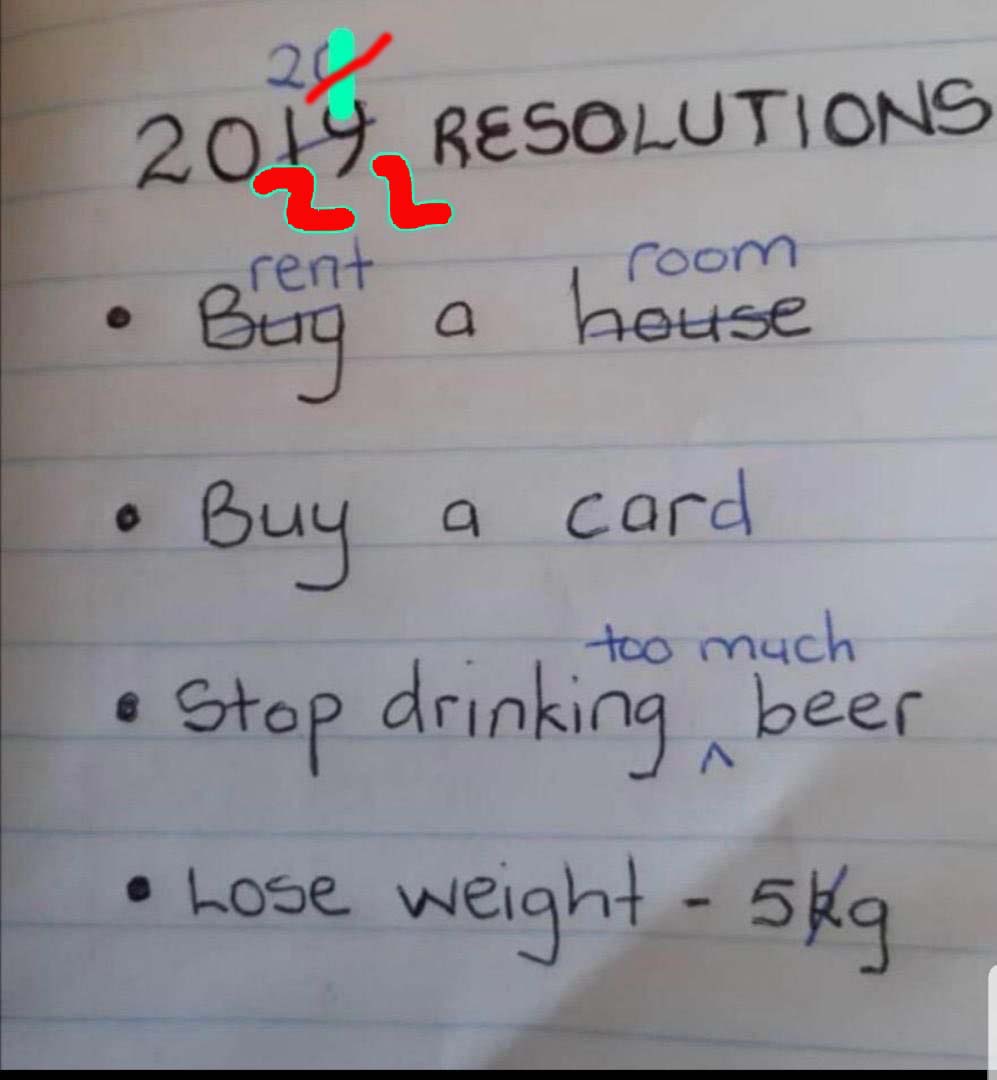 20
2019 RESOLUTIONS
22
rent room
• Buy a house
• Buy a card
too much
• Stop drinking ^ beer
• Lose weight - 5kg